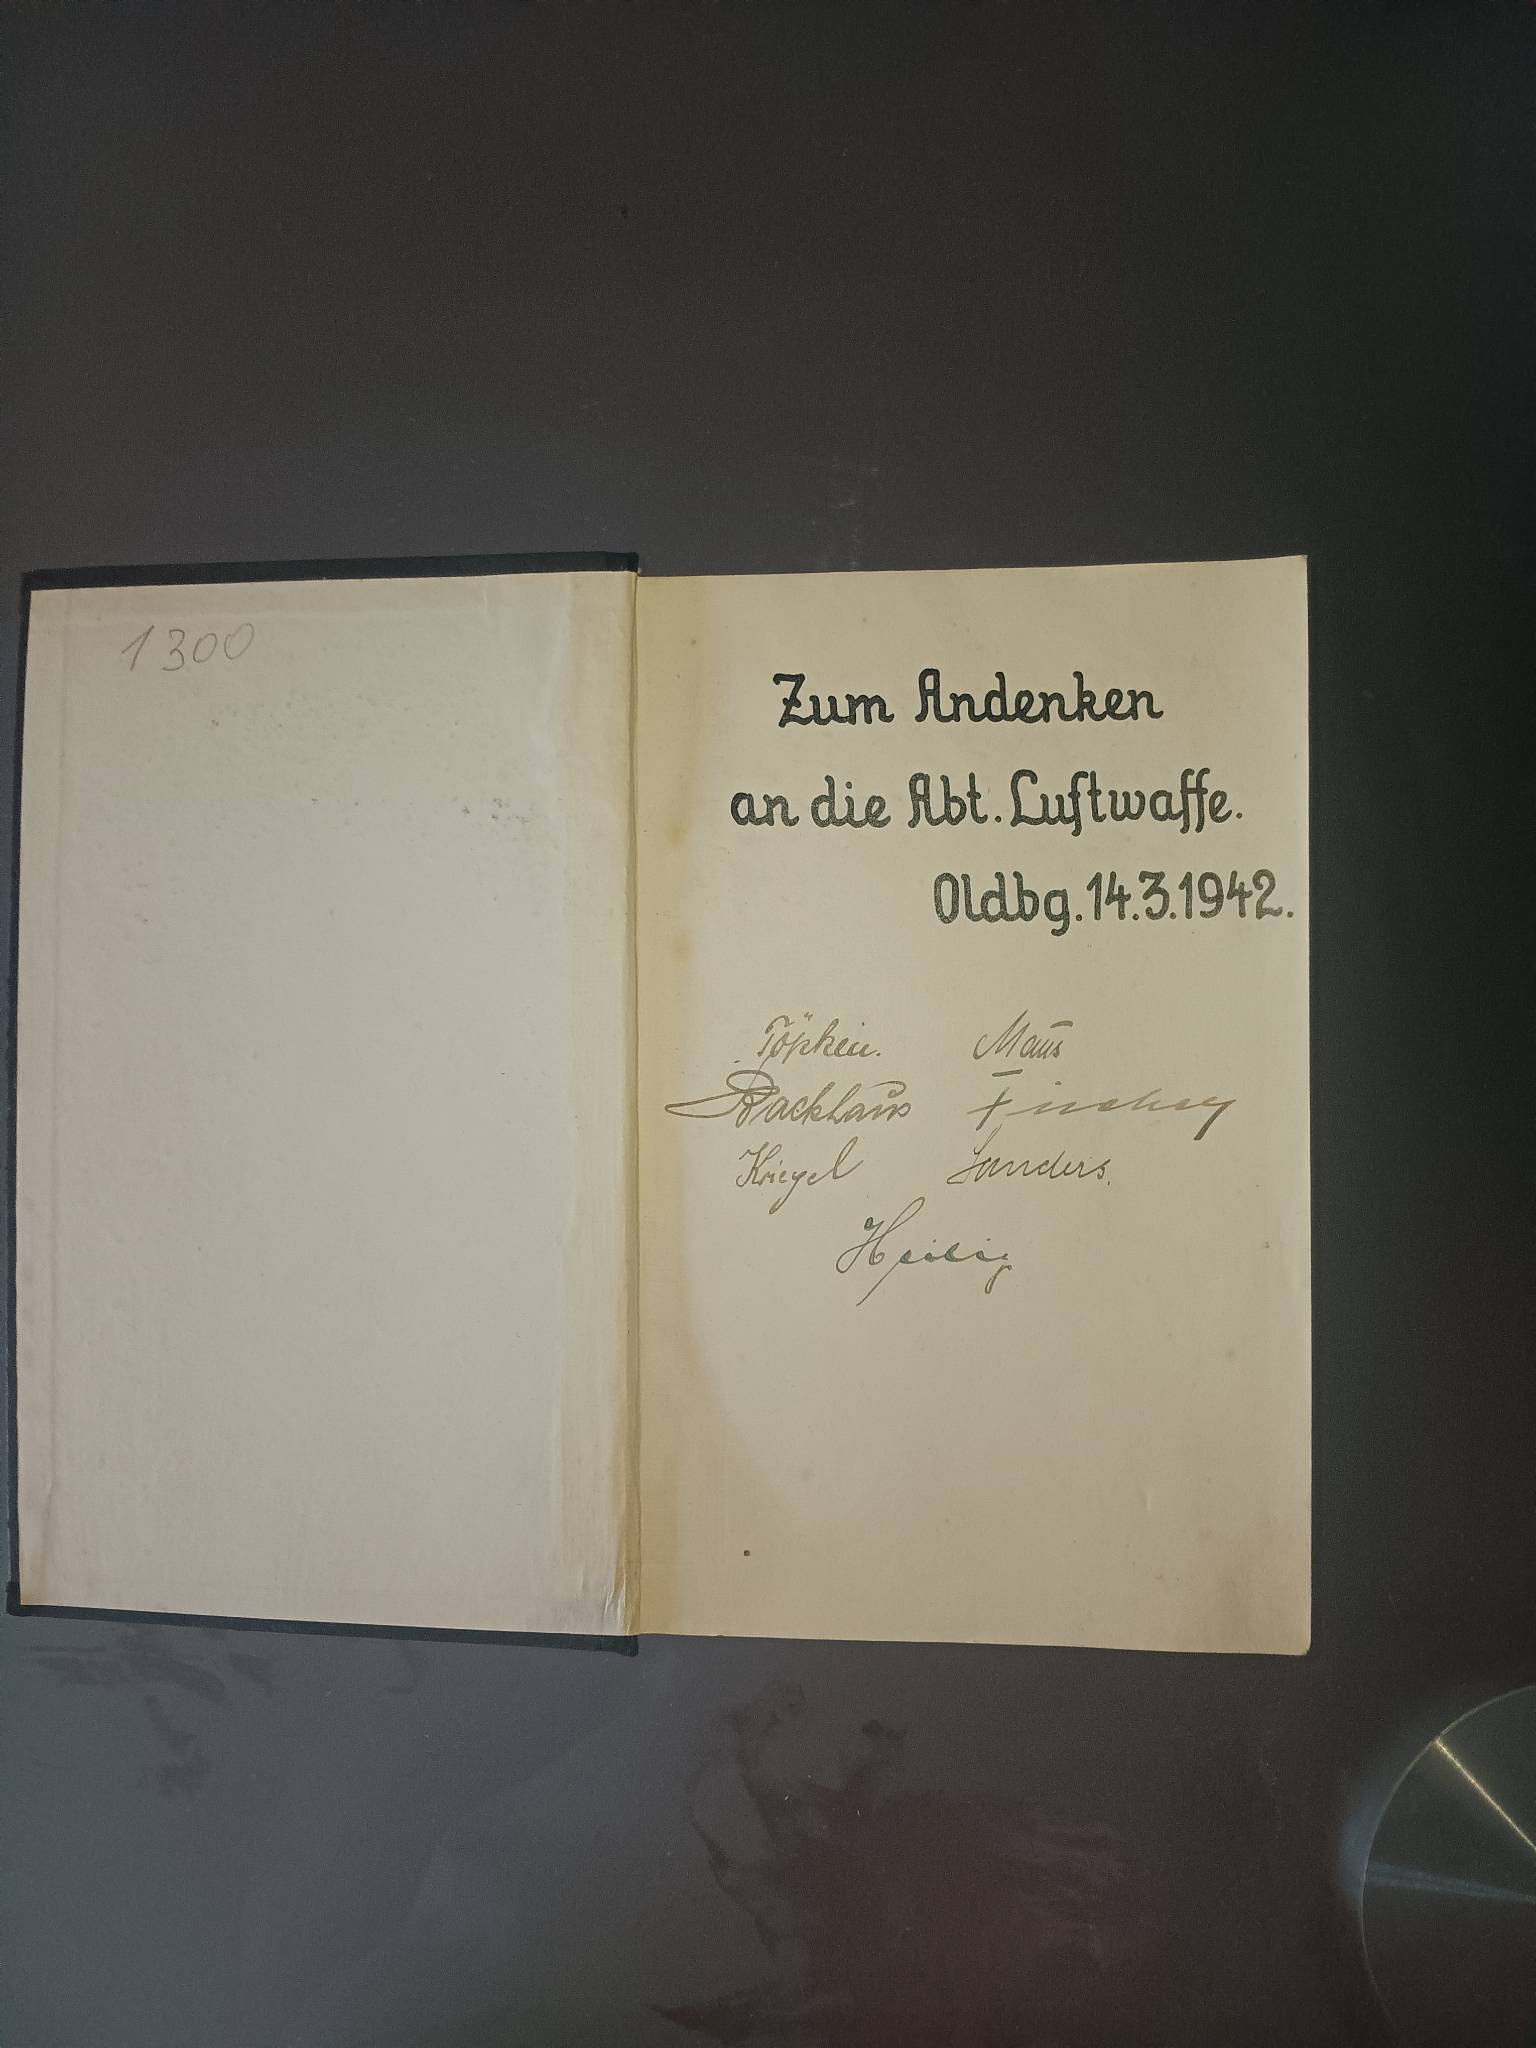 1300
Zum Andenken
an die Abt. Luftwaffe.
Oldbg. 14.3.1942.
Töpken. Maus
Backhaus
Kriegel Sanders.
Heilig